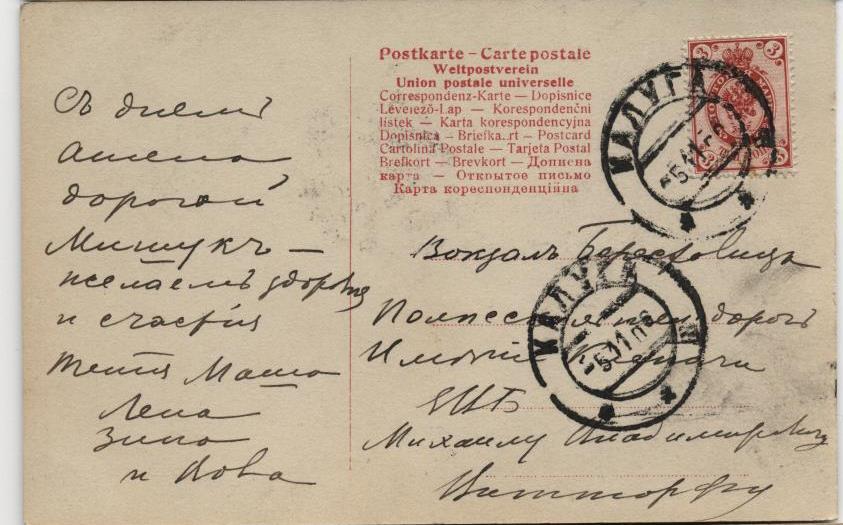 Postkarte – Carte postale
Weltpostverein
Union postale universelle
Correspondenz-Karte — Dopisnice
Levelező-Lap — Korespondenční
listek — Karta korespondencyjna
Dopisnica — Briefkaart — Postcard
Cartolina Postale — Tarjeta Postal
Brefkort — Brevkort — Дописна
карта — Открытое письмо
Карта кореспонденційна
3 3
КАЛУГА
5 11
Съ днемъ
ангела
дорогой
Мишукъ —
желаемъ здоровья
и счастія
тетя Маша
Лена
Зина
и Вова
Вокзалъ Берестовица
Полесскія жел. дорогъ
Имѣніе
ЕЩБ
Михаилу Владимировичу
КАЛУГА
5 11 06